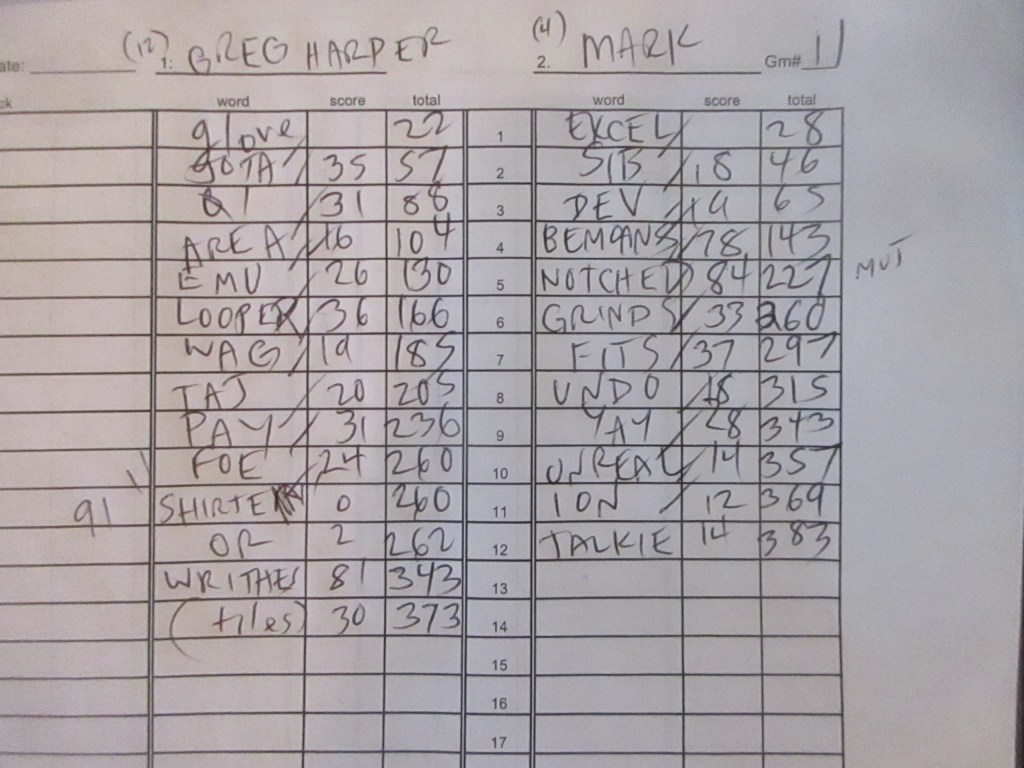 ate: (12) 1: GREG HARPER (4) 2. MARK Gm# 1
ck word score total word score total
glove 22 1 EXCEL 28
JOTA 35 57 2 SIB 18 46
QI 31 88 3 DEV 19 65
AREA 16 104 4 BEMOANS 78 143
EMU 26 130 5 NOTCHED 84 227 MUT
LOOPER 36 166 6 GRINDS 33 260
WAG 19 185 7 FITS 37 297
TAJ 20 205 8 UNDO 18 315
PAY 31 236 9 YAY 28 343
FOE 24 260 10 UNREAL 14 357
91 SHIRTE 0 260 11 ION 12 369
OR 2 262 12 TALKIE 14 383
WRITHES 81 343 13
(tiles) 30 373 14
15
16
17